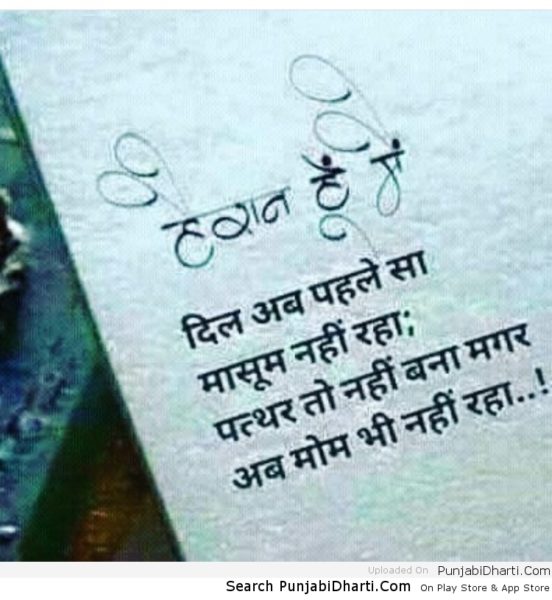 हैरान हूँ मैं
दिल अब पहले सा
मासूम नहीं रहा;
पत्थर तो नहीं बना मगर
अब मोम भी नहीं रहा..!
Uploaded On PunjabiDharti.Com
Search PunjabiDharti.Com On Play Store & App Store